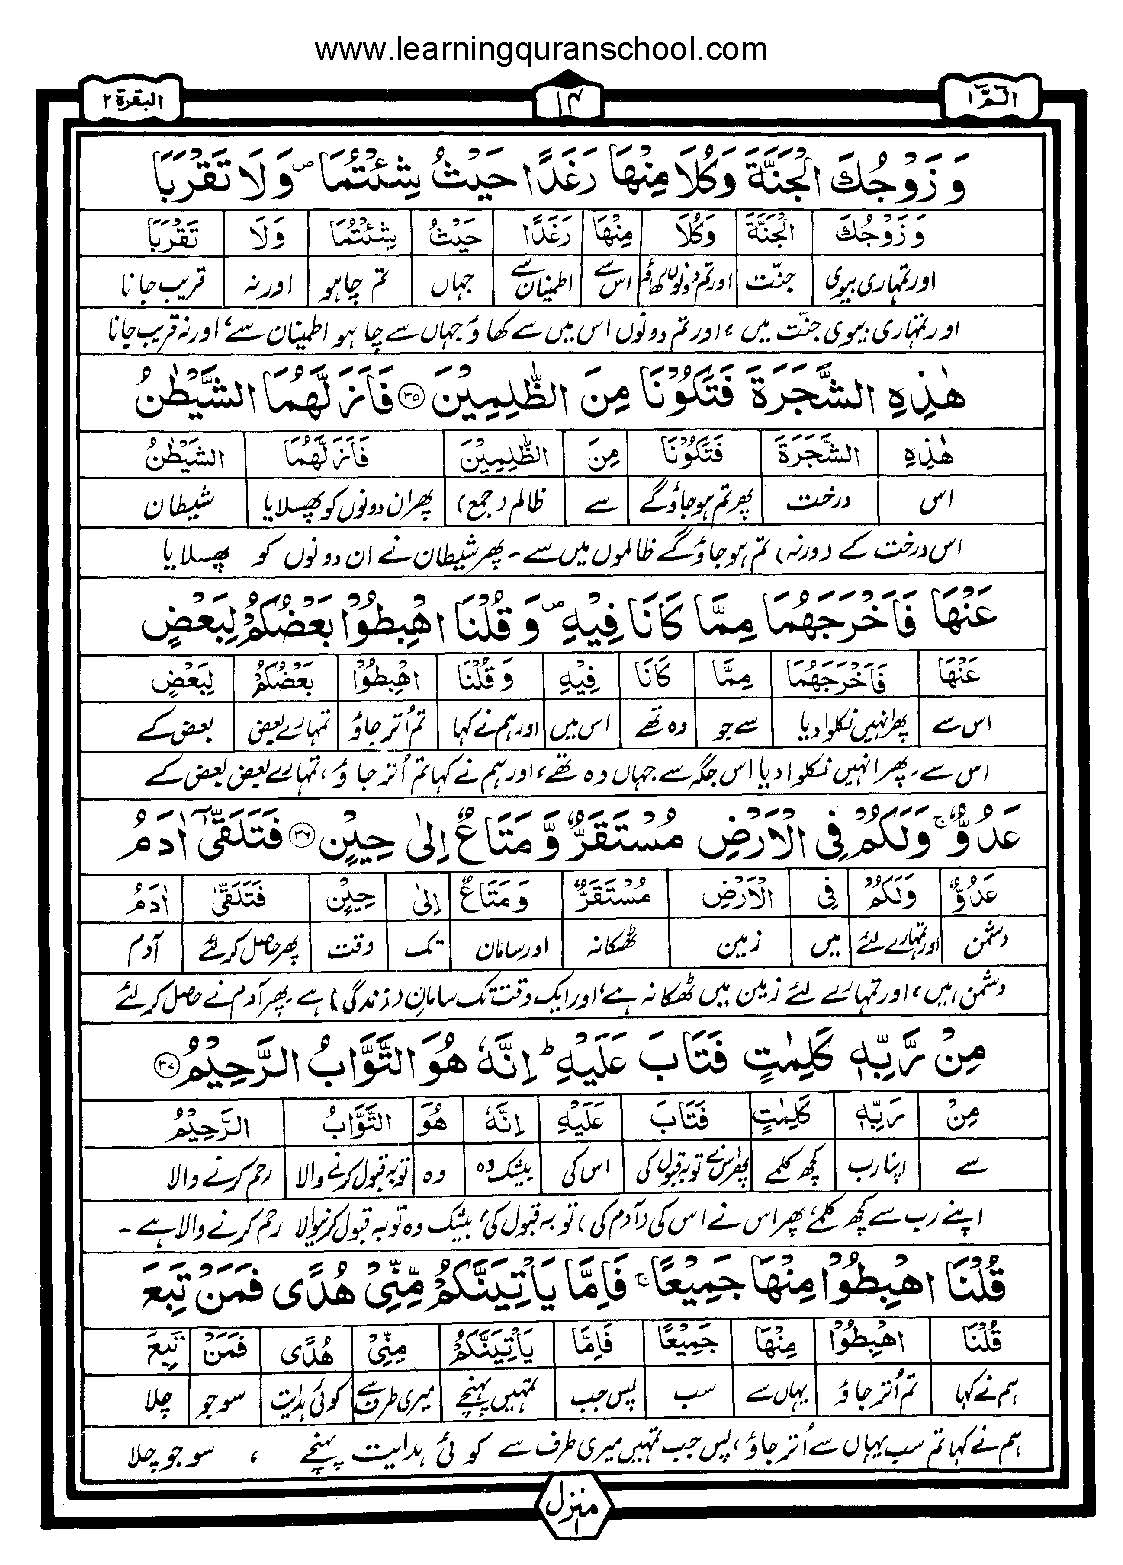 www.learningquranschool.com
الٓمّٓ ١ ١٤ البقرة ٢
وَ زَوْجُكَ الْجَنَّةَ وَكُلَا مِنْهَا رَغَدًا حَيْثُ شِئْتُمَا ۪ وَلَا تَقْرَبَا
وَ زَوْجُكَ الْجَنَّةَ وَكُلَا مِنْهَا رَغَدًا حَيْثُ شِئْتُمَا وَلَا تَقْرَبَا
اور تمہاری بیوی جنّت اور تم دونوں کھاؤ اس سے اطمینان سے جہاں تم چاہو اور نہ قریب جانا
اور تمہاری بیوی جنّت میں، اور تم دونوں اس میں سے کھاؤ جہاں سے چاہو اطمینان سے، اور نہ قریب جانا
هٰذِهِ الشَّجَرَةَ فَتَكُوْنَا مِنَ الظّٰلِمِيْنَ ۝٣٥ فَاَزَلَّهُمَا الشَّيْطٰنُ
هٰذِهِ الشَّجَرَةَ فَتَكُوْنَا مِنَ الظّٰلِمِيْنَ فَاَزَلَّهُمَا الشَّيْطٰنُ
اس درخت پھر تم ہو جاؤ گے سے ظالم (جمع) پھر ان دونوں کو پھسلایا شیطان
اس درخت کے (ورنہ) تم ہو جاؤ گے ظالموں میں سے ۔ پھر شیطان نے ان دونوں کو پھسلایا
عَنْهَا فَاَخْرَجَهُمَا مِمَّا كَانَا فِيْهِ ۪ وَ قُلْنَا اهْبِطُوْا بَعْضُكُمْ لِبَعْضٍ
عَنْهَا فَاَخْرَجَهُمَا مِمَّا كَانَا فِيْهِ وَ قُلْنَا اهْبِطُوْا بَعْضُكُمْ لِبَعْضٍ
اس سے پھر انہیں نکلوا دیا سے جو وہ تھے اس میں اور ہم نے کہا تم اُتر جاؤ تمہارے بعض بعض کے
اس سے ۔ پھر انہیں نکلوا دیا اس جگہ سے جہاں وہ تھے، اور ہم نے کہا تم اُتر جاؤ، تمہارے بعض بعض کے
عَدُوٌّ ۚ وَلَكُمْ فِي الْاَرْضِ مُسْتَقَرٌّ وَّ مَتَاعٌ اِلٰى حِيْنٍ ۝٣٦ فَتَلَقّٰٓى اٰدَمُ
عَدُوٌّ وَلَكُمْ فِي الْاَرْضِ مُسْتَقَرٌّ وَ مَتَاعٌ اِلٰى حِيْنٍ فَتَلَقّٰى اٰدَمُ
دشمن اور تمہارے لئے میں زمین ٹھکانہ اور سامان تک وقت پھر حاصل کر لئے آدم
دشمن ہیں، اور تمہارے لئے زمین میں ٹھکانہ ہے، اور ایک وقت تک سامانِ (زندگی) ہے ۔ پھر آدم نے حاصل کر لئے
مِنْ رَّبِّهٖ كَلِمٰتٍ فَتَابَ عَلَيْهِ ؕ اِنَّهٗ هُوَ التَّوَّابُ الرَّحِيْمُ ۝٣٧
مِنْ رَبِّهٖ كَلِمٰتٍ فَتَابَ عَلَيْهِ اِنَّهٗ هُوَ التَّوَّابُ الرَّحِيْمُ
سے اپنا رب کچھ کلمے پھر اس نے توبہ قبول کی اس کی بیشک وہ وہ توبہ قبول کرنے والا رحم کرنے والا
اپنے رب سے کچھ کلمے، پھر اس نے اس کی (آدم کی) توبہ قبول کی، بیشک وہ توبہ قبول کرنیوالا رحم کرنے والا ہے ۔
قُلْنَا اهْبِطُوْا مِنْهَا جَمِيْعًا ۚ فَاِمَّا يَاْتِيَنَّكُمْ مِّنِّيْ هُدًى فَمَنْ تَبِعَ
قُلْنَا اهْبِطُوْا مِنْهَا جَمِيْعًا فَاِمَّا يَاْتِيَنَّكُمْ مِنِّيْ هُدًى فَمَنْ تَبِعَ
ہم نے کہا تم اُتر جاؤ یہاں سے سب پس جب تمہیں پہنچے میری طرف سے کوئی ہدایت سو جو چلا
ہم نے کہا تم سب یہاں سے اُتر جاؤ، پس جب تمہیں میری طرف سے کوئی ہدایت پہنچے ، سو جو چلا
منزل ١